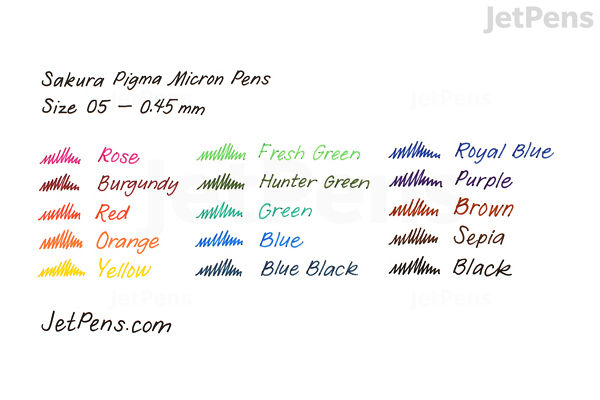 JetPens
Sakura Pigma Micron Pens
Size 05 – 0.45mm
JetPens
Rose
Burgundy
Red
Orange
Yellow
Fresh Green
Hunter Green
Green
Blue
Blue Black
Royal Blue
Purple
Brown
Sepia
Black
JetPens
JetPens
JetPens
JetPens.com